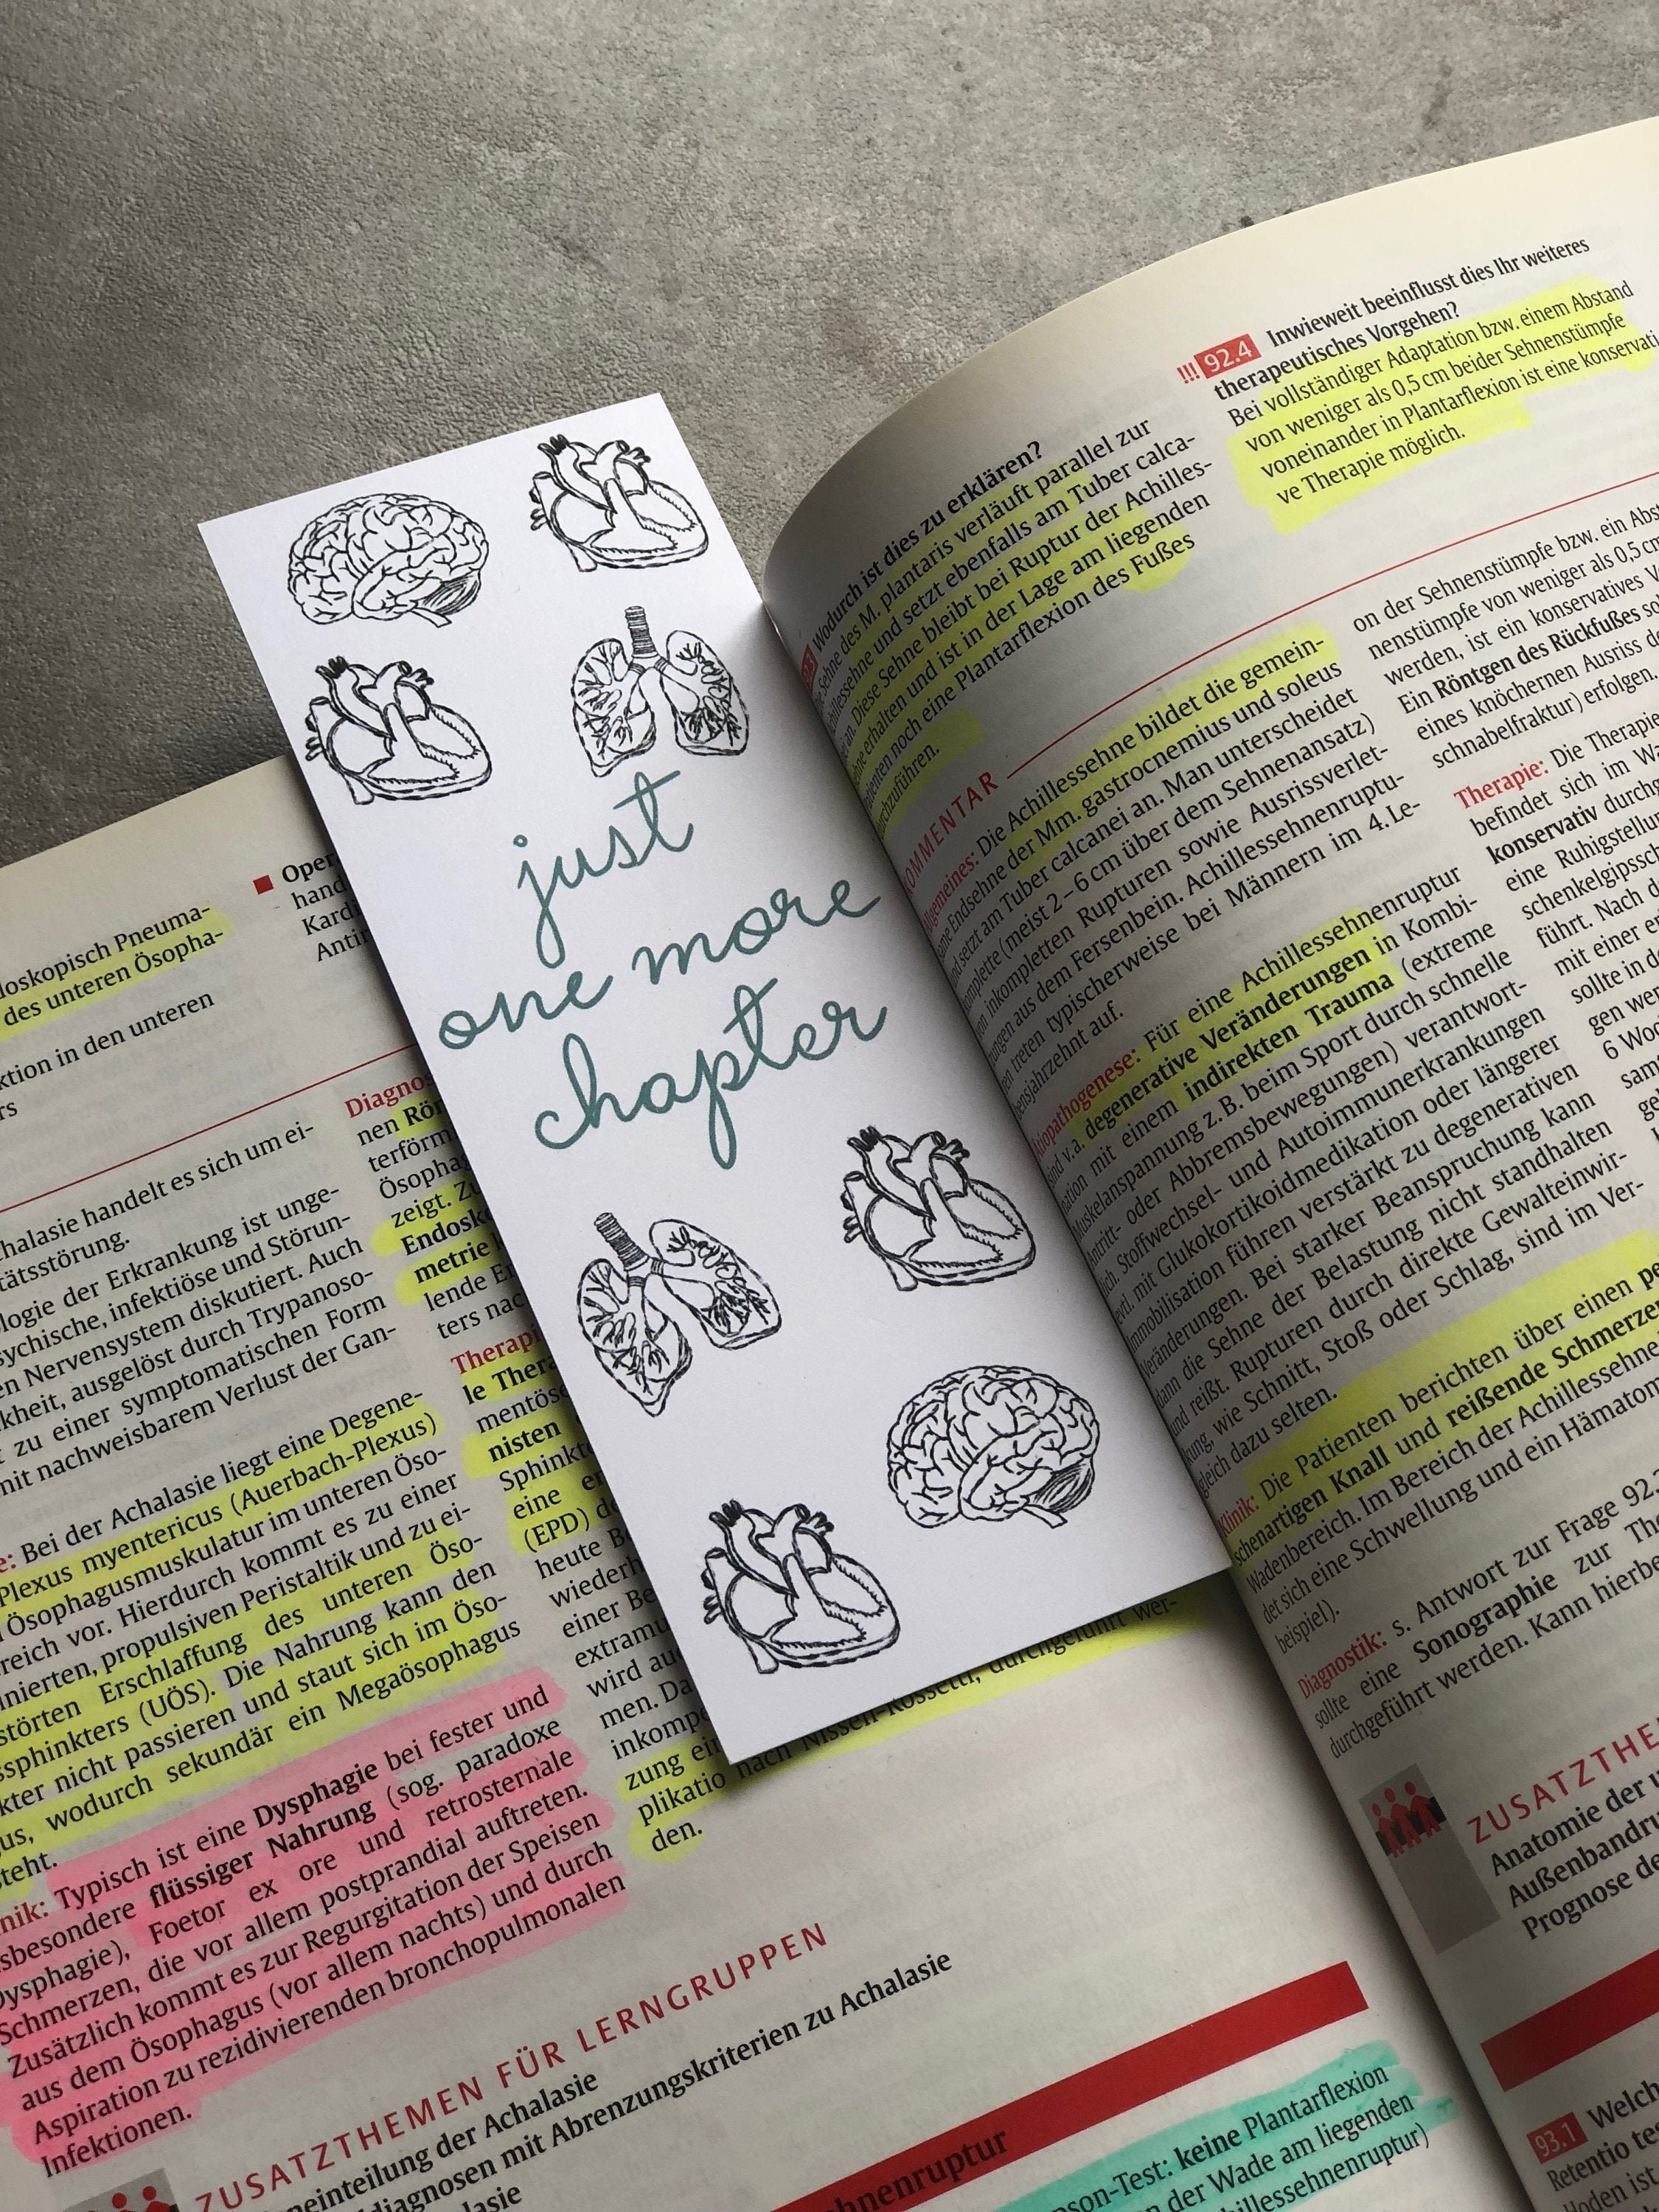 just
one more
chapter
doskopisch Pneuma-
des unteren Ösopha-
ktion in den unteren
handelt es sich um ei-
tätsstörung.
der Erkrankung ist unge-
infektiöse und Störun-
en Nervensystem diskutiert. Auch
ausgelöst durch Trypanoso-
zu einer symptomatischen Form
mit nachweisbarem Verlust der Gan-
Bei der Achalasie liegt eine Degene-
Plexus myentericus (Auerbach-Plexus)
Ösophagusmuskulatur im unteren Öso-
vor. Hierdurch kommt es zu einer
propulsiven Peristaltik und zu ei-
Erschlaffung des unteren Öso-
(UÖS). Die Nahrung kann den
nicht passieren und staut sich im Öso-
wodurch sekundär ein Megaösophagus
Typisch ist eine Dysphagie bei fester und
flüssiger Nahrung (sog. paradoxe
Dysphagie), Foetor ex ore und retrosternale
Schmerzen, die vor allem postprandial auftreten.
Zusätzlich kommt es zur Regurgitation der Speisen
aus dem Ösophagus (vor allem nachts) und durch
Aspiration zu rezidivierenden bronchopulmonalen
Infektionen.
ZUSATZTHEMEN FÜR LERNGRUPPEN
der Achalasie
mit Abrenzungskriterien zu Achalasie
■ Oper
hand
Kardi
Antir
Diagnos
nen Rön
terförm
Ösophag
zeigt. Zu
Endosk
metrie
lende
ters nac
Therap
le Thera
mentös
nisten
Sphinkt
eine
(EPD) d
heute
wiederh
einer Be
extramu
wird au
men. Da
inkomp
zung ei
plikatio nach Nissen-Rossetti, durchgeführt wer-
den.
-Test: keine Plantarflexion
der Wade am liegenden
Wodurch ist dies zu erklären?
Sehne des M. plantaris verläuft parallel zur
und setzt ebenfalls am Tuber calca-
an. Diese Sehne bleibt bei Ruptur der Achilles-
erhalten und ist in der Lage am liegenden
Patienten noch eine Plantarflexion des Fußes
durchzuführen.
!!! 92.4 Inwieweit beeinflusst dies Ihr weiteres
therapeutisches Vorgehen?
Bei vollständiger Adaptation bzw. einem Abstand
von weniger als 0,5 cm beider Sehnenstümpfe
voneinander in Plantarflexion ist eine konservati-
ve Therapie möglich.
KOMMENTAR
Allgemeines: Die Achillessehne bildet die gemein-
same Endsehne der Mm. gastrocnemius und soleus
und setzt am Tuber calcanei an. Man unterscheidet
komplette (meist 2–6 cm über dem Sehnenansatz)
von inkompletten Rupturen sowie Ausrissverlet-
zungen aus dem Fersenbein. Achillessehnenruptu-
ren treten typischerweise bei Männern im 4. Le-
bensjahrzehnt auf.
Ätiopathogenese: Für eine Achillessehnenruptur
sind v.a. degenerative Veränderungen in Kombi-
nation mit einem indirekten Trauma (extreme
Muskelanspannung z. B. beim Sport durch schnelle
Antritt- oder Abbremsbewegungen) verantwort-
lich. Stoffwechsel- und Autoimmunerkrankungen
evtl. mit Glukokortikoidmedikation oder längerer
Immobilisation führen verstärkt zu degenerativen
Veränderungen. Bei starker Beanspruchung kann
dann die Sehne der Belastung nicht standhalten
und reißt. Rupturen durch direkte Gewalteinwir-
kung, wie Schnitt, Stoß oder Schlag, sind im Ver-
gleich dazu selten.
Klinik: Die Patienten berichten über einen
schenartigen Knall und reißende Schmerzen
Wadenbereich. Im Bereich der Achillessehne
det sich eine Schwellung und ein Hämatom
beispiel).
Diagnostik: s. Antwort zur Frage 92.
sollte eine Sonographie zur
durchgeführt werden. Kann hierbei
ZUSATZTHE
Anatomie der
Außenbandru
Prognose de
on der Sehnenstümpfe bzw. ein
nenstümpfe von weniger als 0,5 cm
werden, ist ein konservatives
Ein Röntgen des Rückfußes
eines knöchernen Ausriss
schnabelfraktur) erfolgen.
Therapie: Die Therapie
befindet sich im
konservativ
eine Ruhigstellun
schenkelgipssch
führt. Nach
mit einer
sollte in
gen
6
93.1 Welch